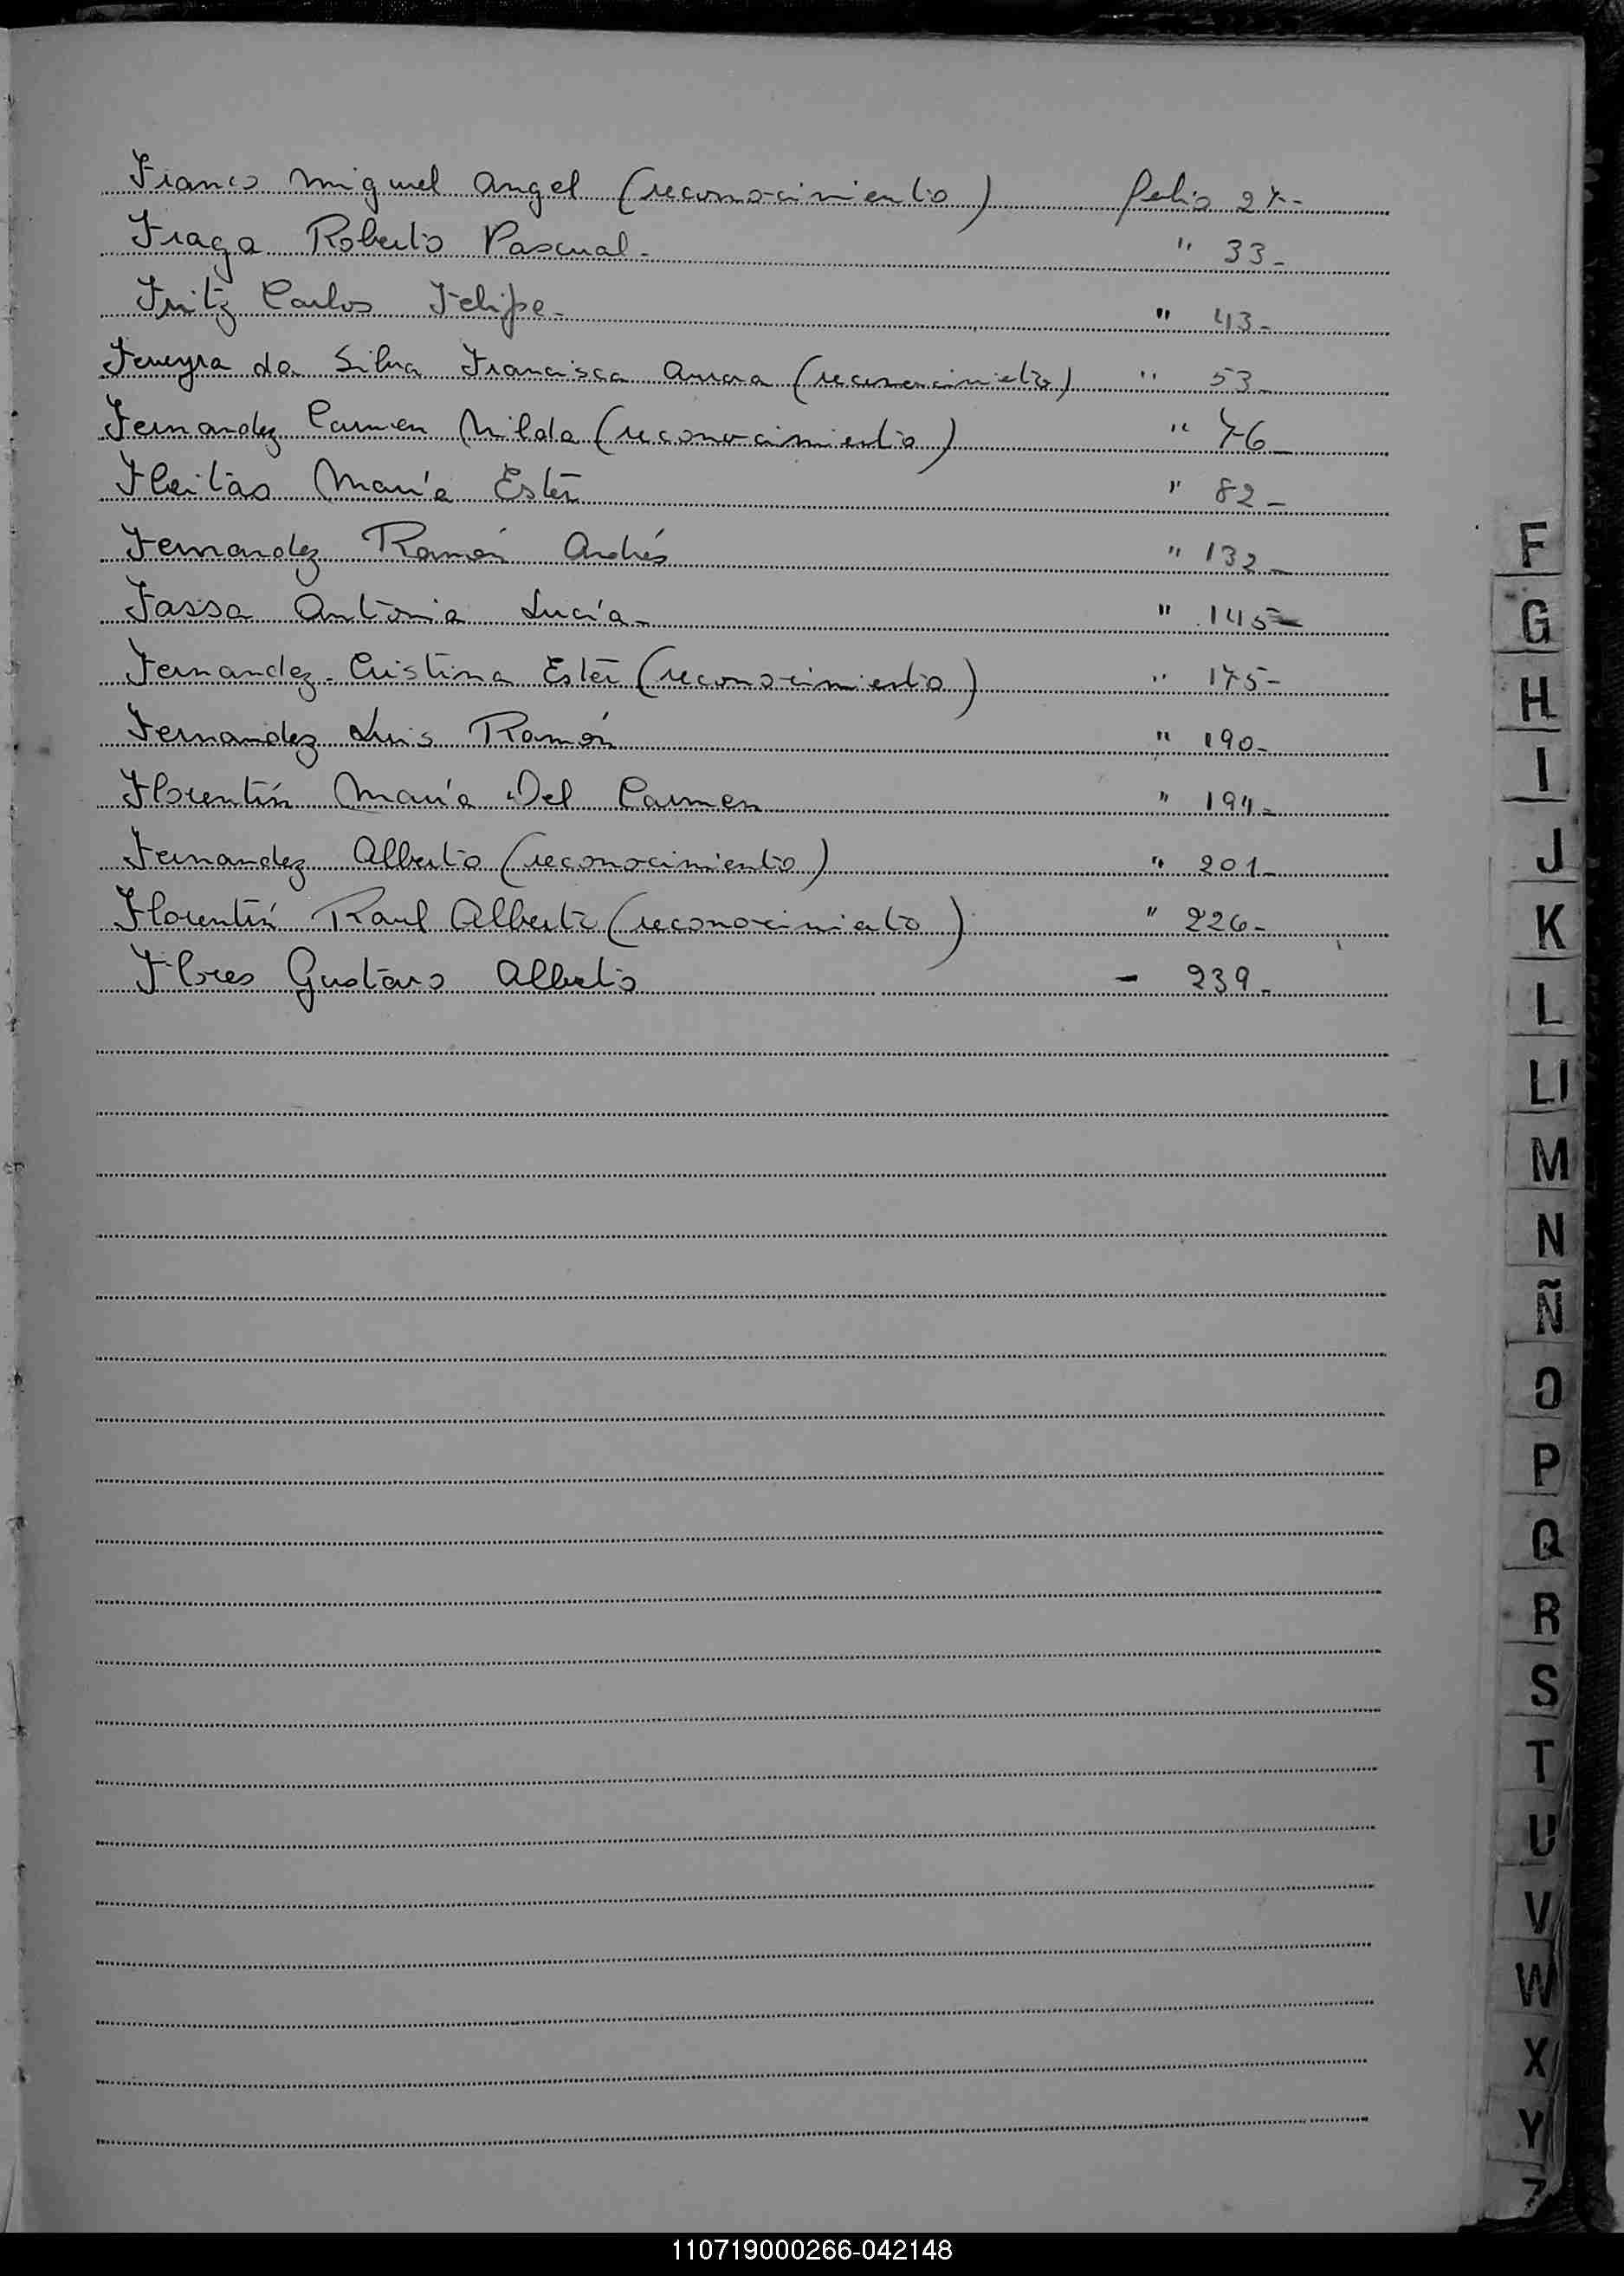 Franco Miguel Angel (reconocimiento) folio 27-
Fraga Roberto Pascual- " 33-
Fritz Carlos Felipe- " 43-
Ferreyra da Silva Francisca (reconocimiento) " 53-
Fernandez Carmen Nilda (reconocimiento) " 76-
Fleitas María Ester " 82-
Fernandez Ramón Andrés " 132-
Fassa Antonia Lucía- " 145-
Fernandez- Cristina Ester (reconocimiento) " 175-
Fernandez Luis Ramón " 190-
Florentín María Del Carmen " 194-
Fernandez Alberto (reconocimiento) " 201-
Florentín Raul Alberto (reconocimiento) " 226-
Flores Gustavo Alberto - 239-
F
G
H
I
J
K
L
Ll
M
N
Ñ
O
P
Q
R
S
T
U
V
W
X
Y
Z
110719000266-042148